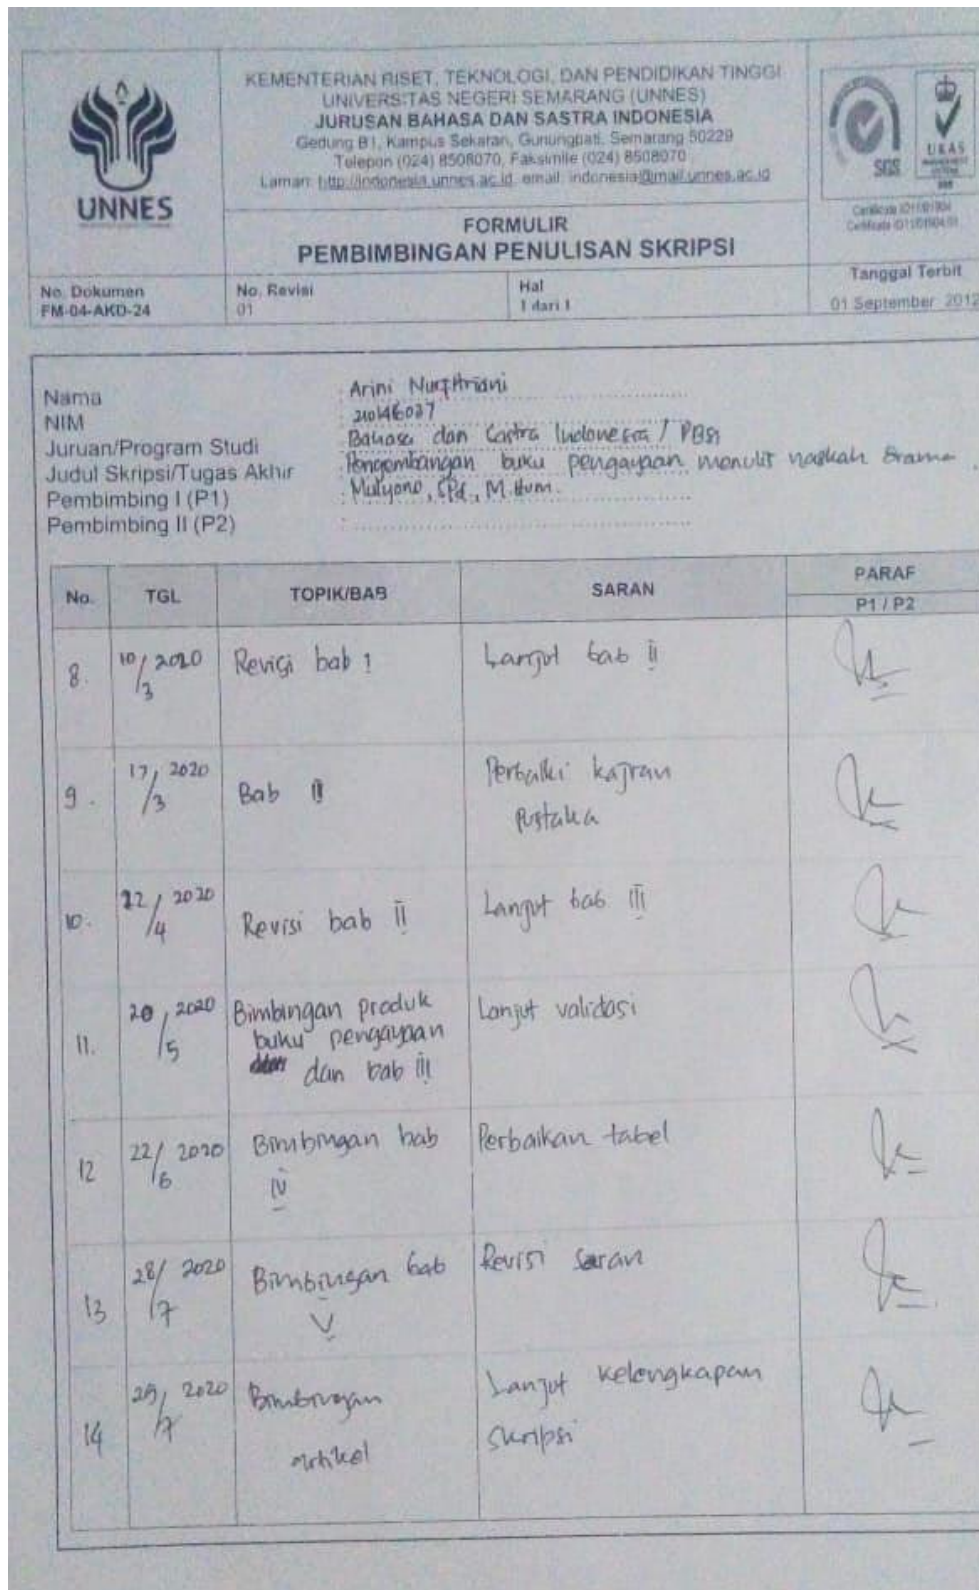 UNNES
KEMENTERIAN RISET, TEKNOLOGI, DAN PENDIDIKAN TINGGI
UNIVERSITAS NEGERI SEMARANG (UNNES)
JURUSAN BAHASA DAN SASTRA INDONESIA
Gedung B1, Kampus Sekaran, Gunungpati, Semarang 50229
Telepon (024) 8508070, Faksimile (024) 8508070
Laman: http://indonesia.unnes.ac.id, email: indonesia@mail.unnes.ac.id
FORMULIR
PEMBIMBINGAN PENULISAN SKRIPSI
SGS
UKAS
No. Dokumen
FM-04-AKD-24
No. Revisi
01
Hal
1 dari 1
Tanggal Terbit
01 September 2012
Nama : Arini Nurfitriani
NIM :
Juruan/Program Studi : Bahasa dan Sastra Indonesia / PBSI
Judul Skripsi/Tugas Akhir : Pengembangan buku pengayaan menulis naskah drama
Pembimbing I (P1) : Mulyono, S.Pd., M.Hum.
Pembimbing II (P2) :
No. TGL TOPIK/BAB SARAN PARAF
P1 / P2
8. 10/3 2020 Revisi bab 1 Lanjut bab II
9. 17/3 2020 Bab II Perbaiki kajian
pustaka
10. 22/4 2020 Revisi bab II Lanjut bab III
11. 20/5 2020 Bimbingan produk Lanjut validasi
buku pengayaan
dan bab III
12 22/6 2020 Bimbingan bab Perbaikan tabel
IV
13 28/7 2020 Bimbingan bab Revisi saran
V
14 29/7 2020 Bimbingan Lanjut kelengkapan
artikel skripsi